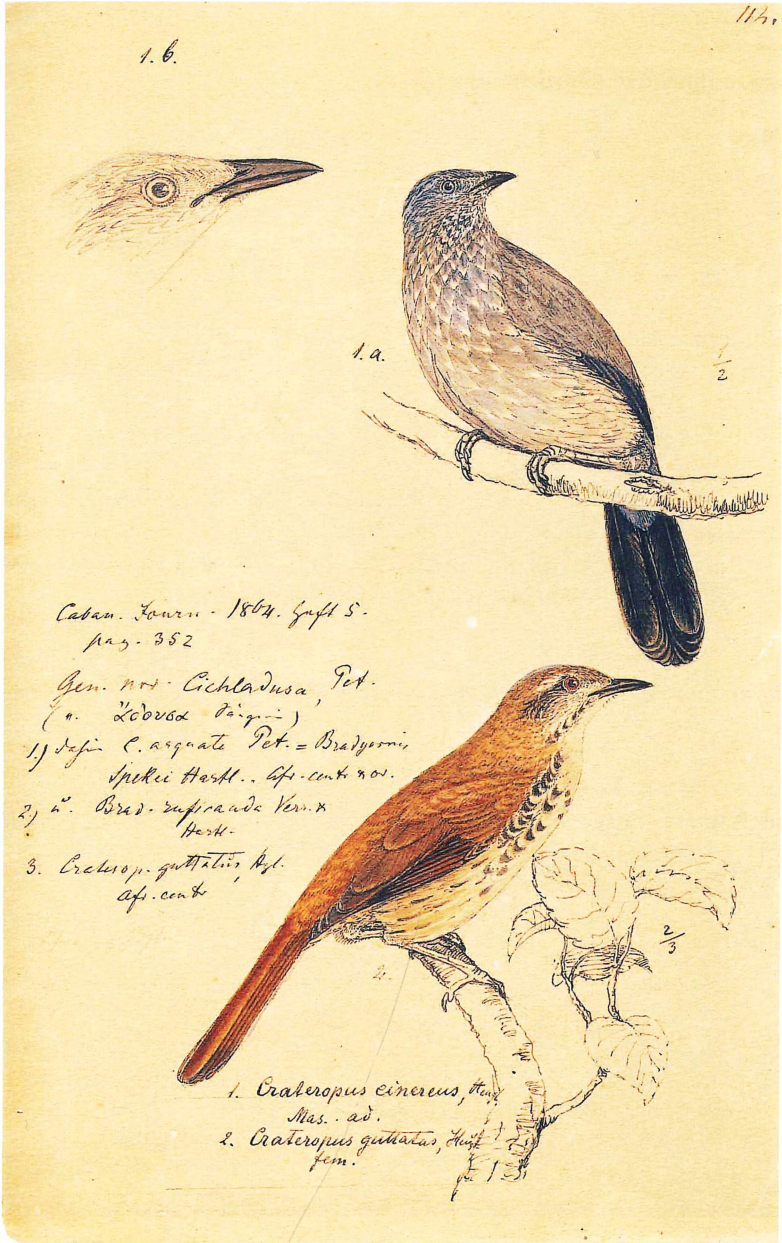 114.
1. b.
1. a.
1/2
Caban. Journ. 1864. Heft 5.
pag. 352
Gen. nov. Cichladusa, Pet.
(v. ἄδουσα)
1.) C. arquata Pet. = Bradyornis
Spekei Hartl.. Afr. centr. or.
2.) Brad. ruficauda Verr. &
Hartl.
3. Craterop. guttatus, Hgl.
Afr. centr
2/3
2.
1. Crateropus cinereus, Heugl
Mas. ad.
2. Crateropus guttatus, Heugl
fem.